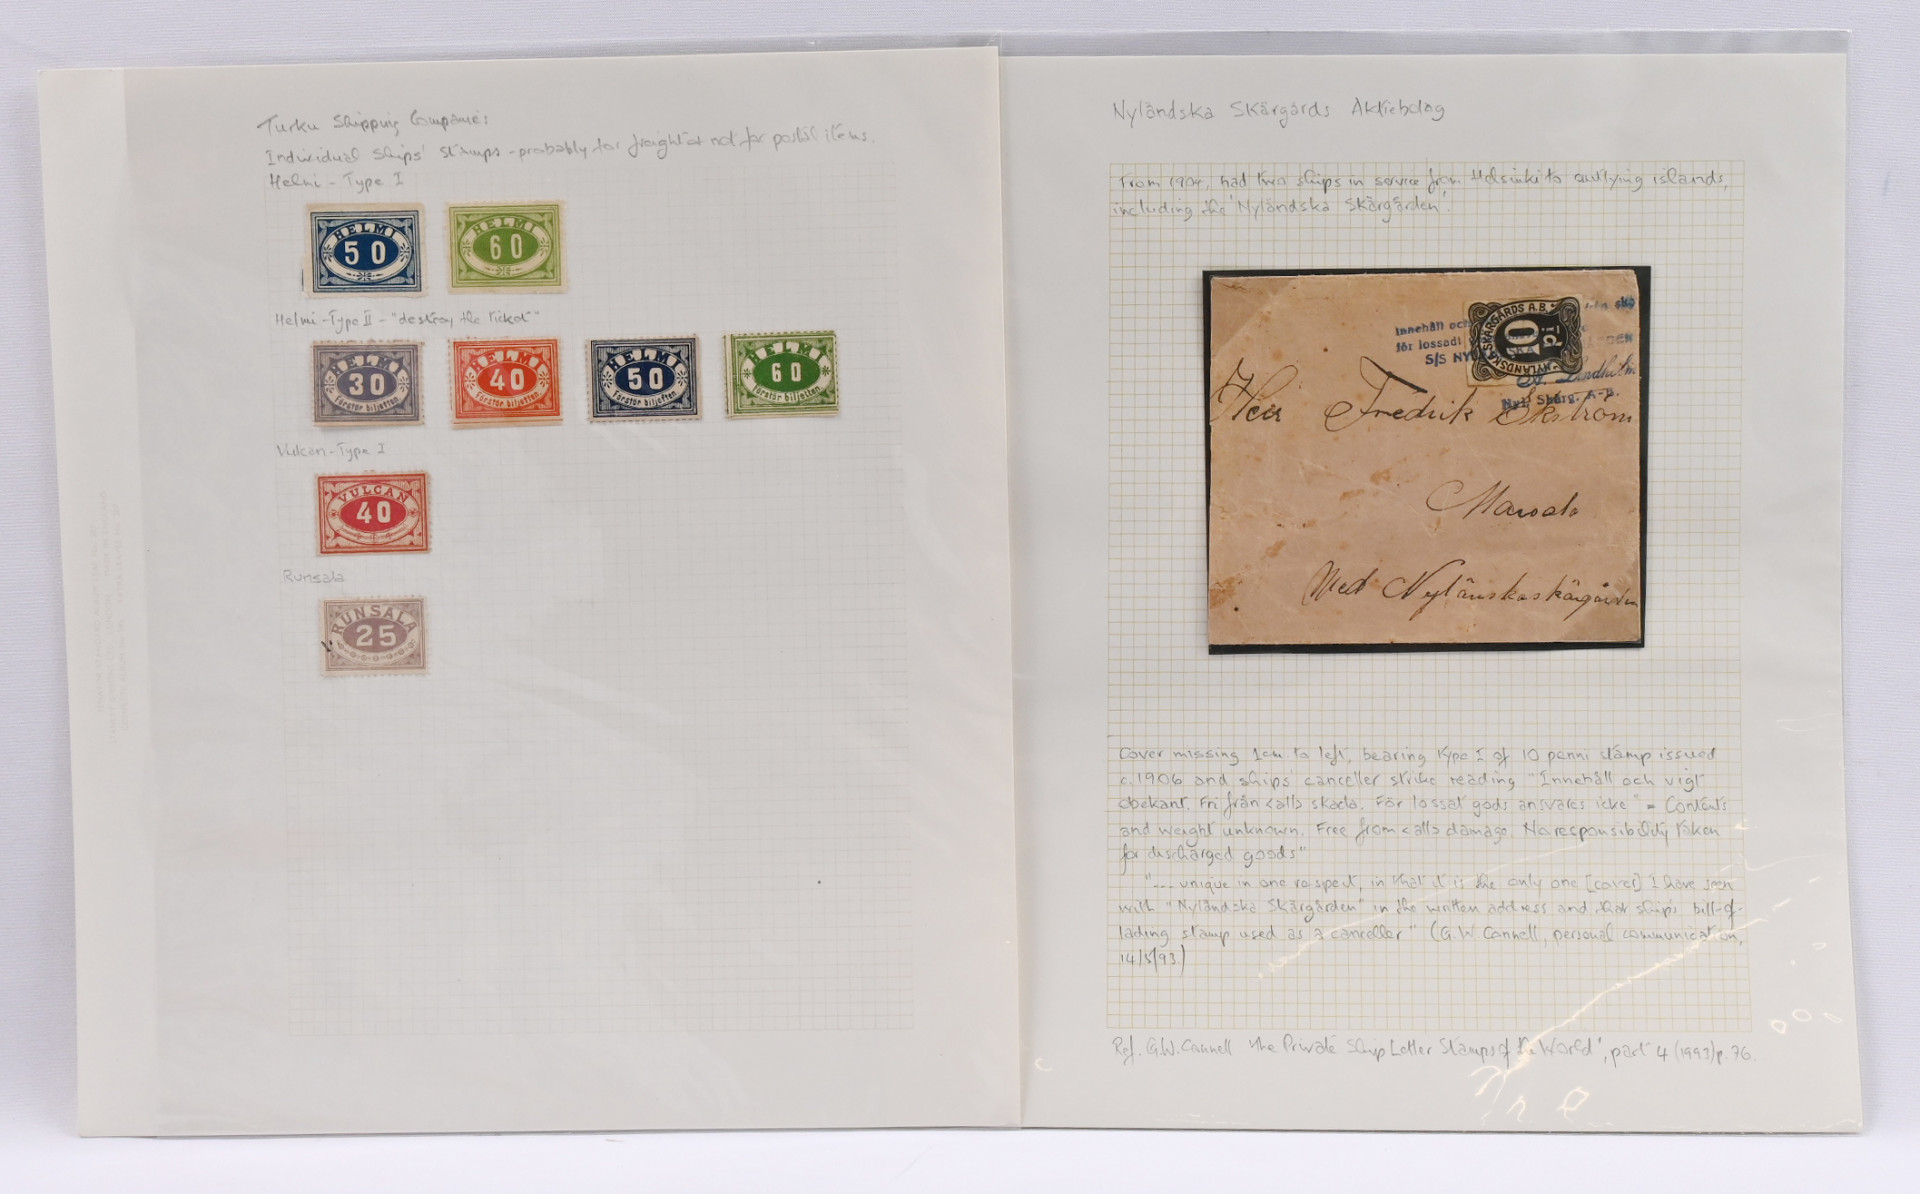 Turku Shipping Companies
Individual Ships' Stamps - probably for freight & not for postal items.
Helmi - Type I
HELMI
50
HELMI
60
Helmi - Type II - "destroy the ticket"
HELMI
30
Förstör biljetten
HELMI
40
Förstör biljetten
HELMI
50
Förstör biljetten
HELMI
60
Förstör biljetten
Vulcan - Type I
VULCAN
40
Runsala
RUNSALA
25
Nyländska Skärgårds Aktiebolag
From 1904, had two ships in service from Helsinki to outlying islands,
including the 'Nyländska Skärgården'.
NYLÄNDSKA SKÄRGÅRDS A.B.
10
pi
Innehåll och
för lossadt
S/S NY
DEN
Lindholm
Nyl. Skärg. A-B.
Herr Fredrik Ekström
Med Nylänskaskärgården
Cover missing 1cm to left, bearing Type I of 10 penni stamp issued
c.1906 and ships' canceller strike reading "Innehåll och vigt
obekant. Fri från calls skada. För lossat gods ansvares icke" = Contents
and weight unknown. Free from calls damage. No responsibility taken
for discharged goods"
"--- unique in one respect, in that it is the only one [cover] I have seen
with "Nyländska Skärgården" in the written address and that ship's bill-of-
lading stamp used as a canceller" (G.W. Connell, personal communication,
14/5/93)
Ref. G.W. Connell 'The Private Ship Letter Stamps of the World', part 4 (1993) p.76.